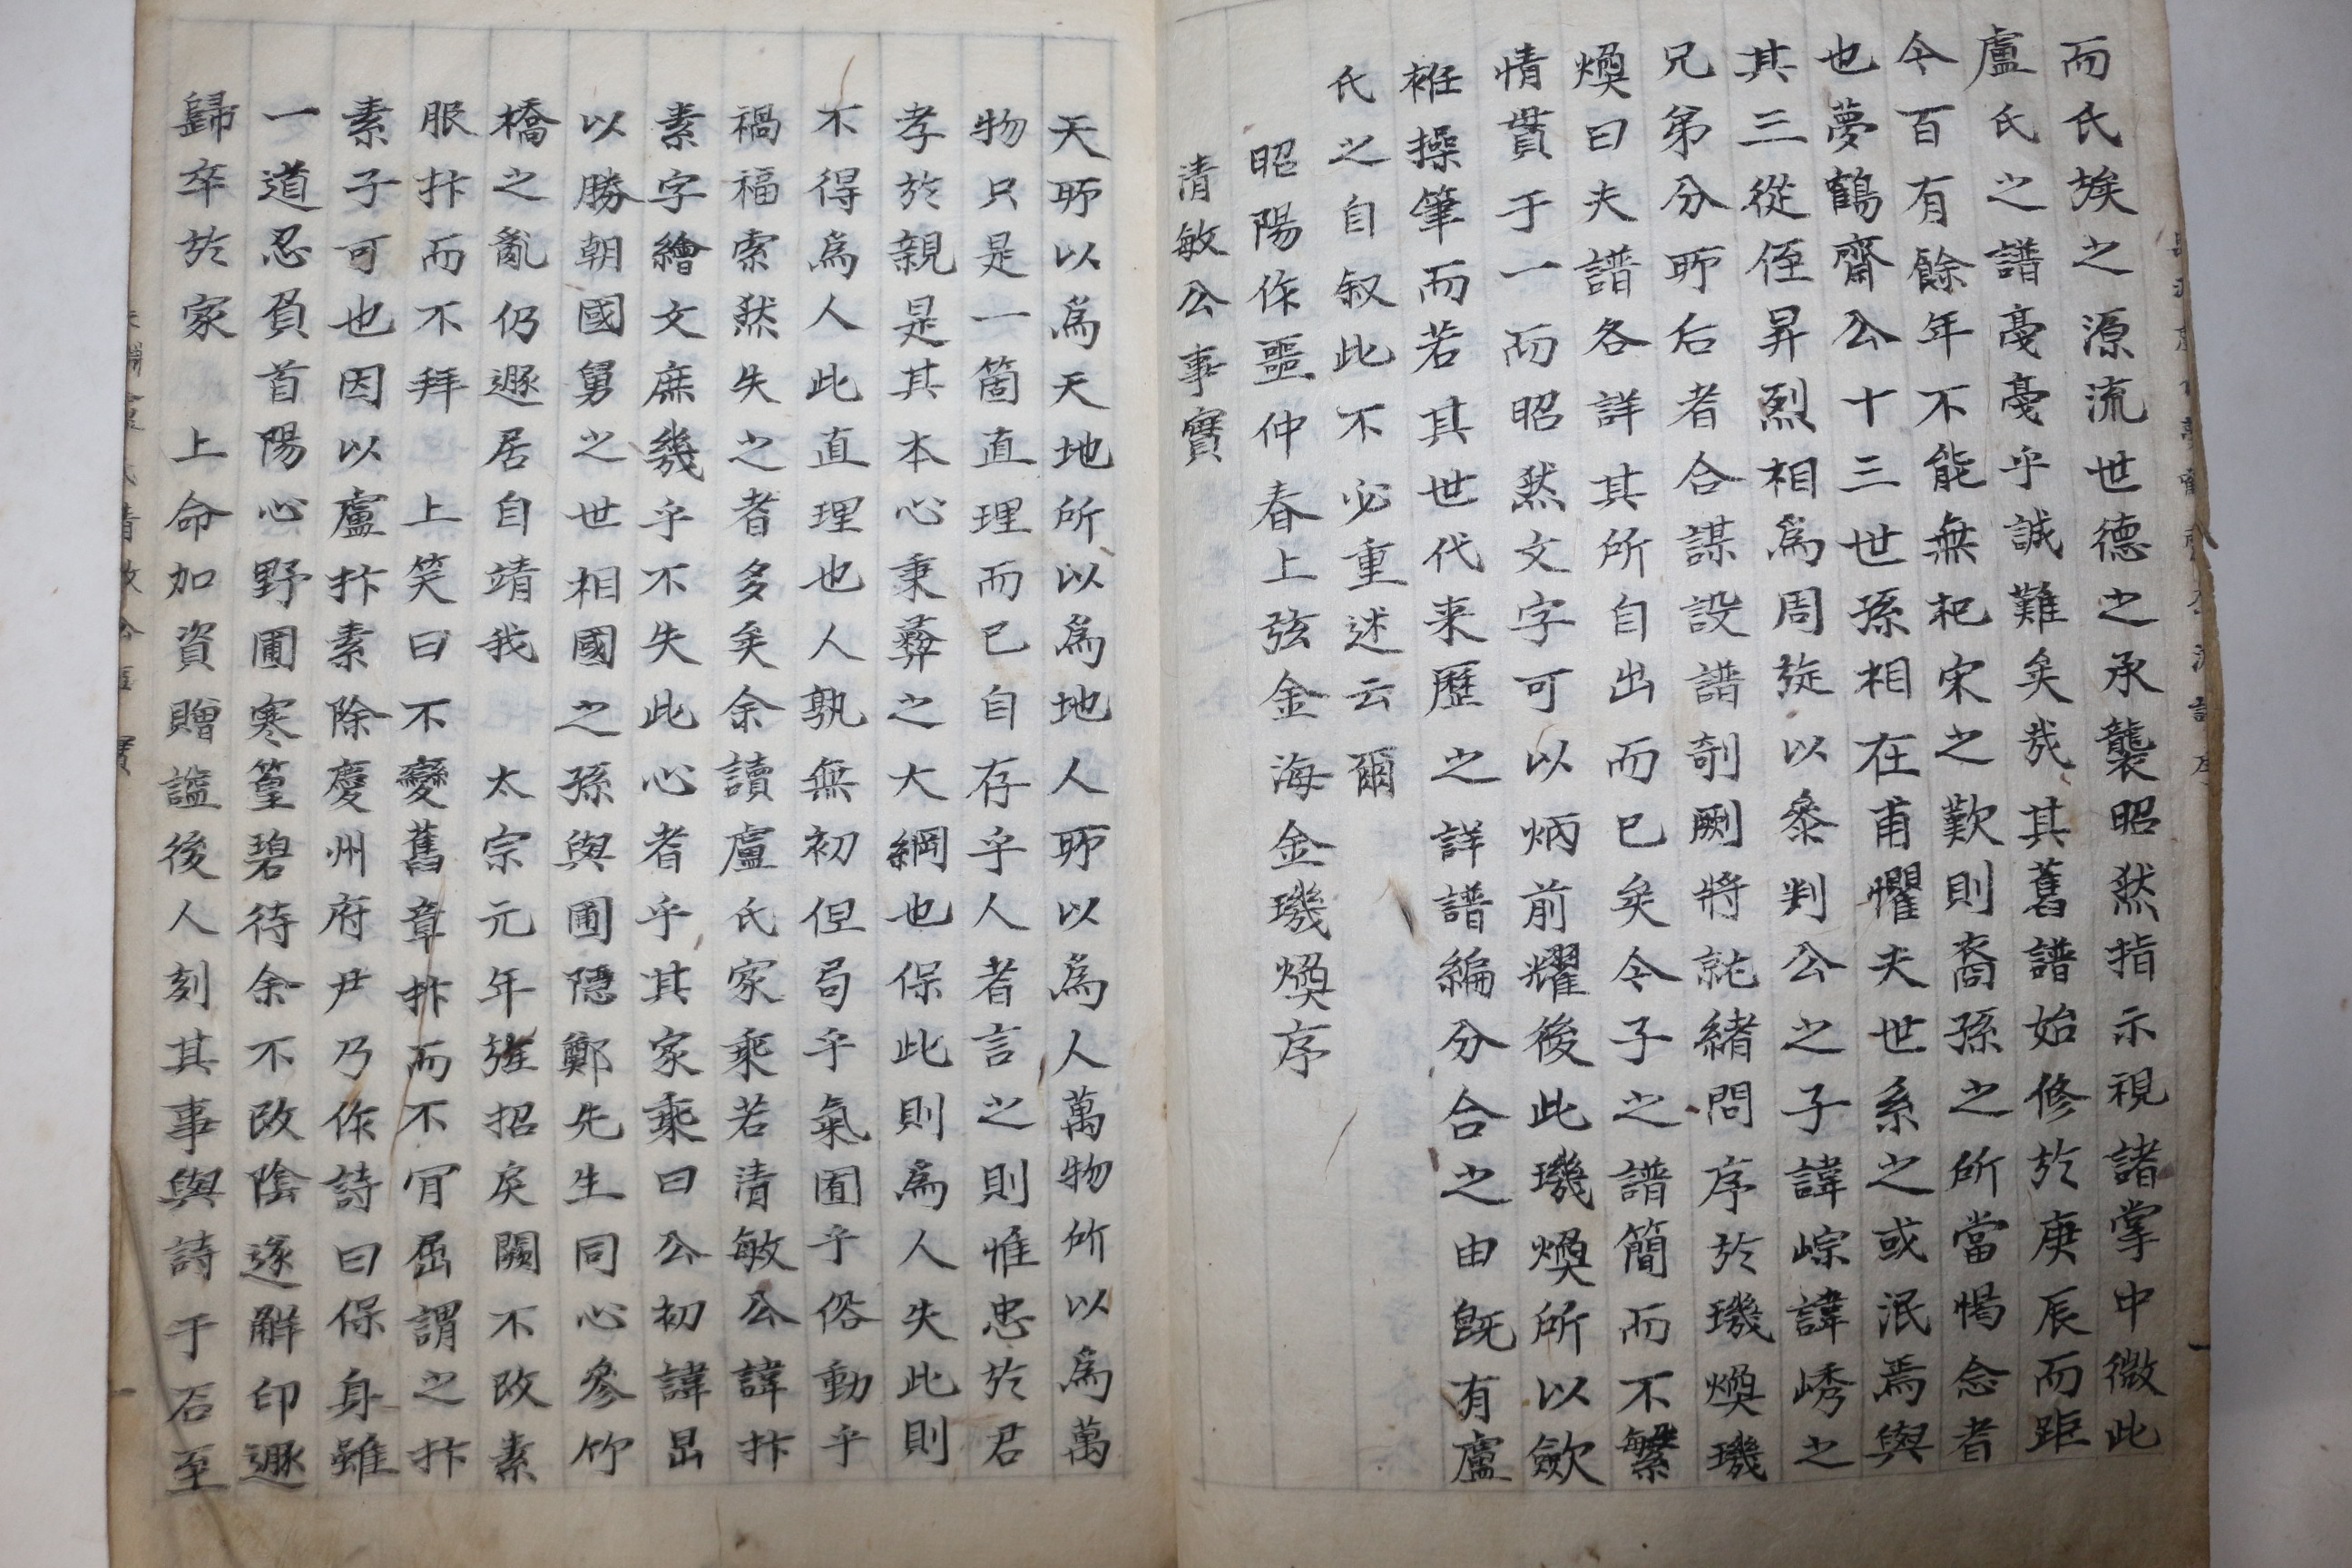 而氏族之源流世德之承襲昭然指示視諸掌中微此
盧氏之譜戞戞乎誠難矣哉其舊譜始修於庚辰而距
今百有餘年不能無杞宋之歎則裔孫之所當惕念者
也夢鶴齋公十三世孫相在甫懼夫世系之或泯焉與
其三從侄昇烈相爲周旋以叅判公之子諱崇諱嵪之
兄弟分所后者合謀設譜剞劂將訖緖問序於璣煥璣
煥曰夫譜各詳其所自出而已矣今子之譜簡而不繁
情貫于一而昭然文字可以炳前耀後此璣煥所以歛
袵操筆而若其世代来歷之詳譜編分合之由旣有盧
氏之自叙此不必重述云爾
昭陽作噩仲春上弦金海金璣煥序
清敏公事實
天所以爲天地所以爲地人所以爲人萬物所以爲萬
物只是一箇直理而已自存乎人者言之則惟忠於君
孝於親是其本心秉彝之大綱也保此則爲人失此則
不得爲人此直理也人孰無初但局乎氣囿乎俗動乎
禍福索然失之者多矣余讀盧氏家乘若清敏公諱抃
素字繪文庶幾乎不失此心者乎其家乘曰公初諱昌
以勝朝國舅之世相國之孫與圃隱鄭先生同心參竹
橋之亂仍遯居自靖我 太宗元年强招戾闕不改素
服抃而不拜 上笑曰不變舊章抃而不肎屈謂之抃
素子可也因以盧抃素除慶州府尹乃作詩曰保身雖
一道忍負首陽心野圃寒篁碧待余不改陰遂解印遯
歸卒於家 上命加資贈謚後人刻其事與詩于石至